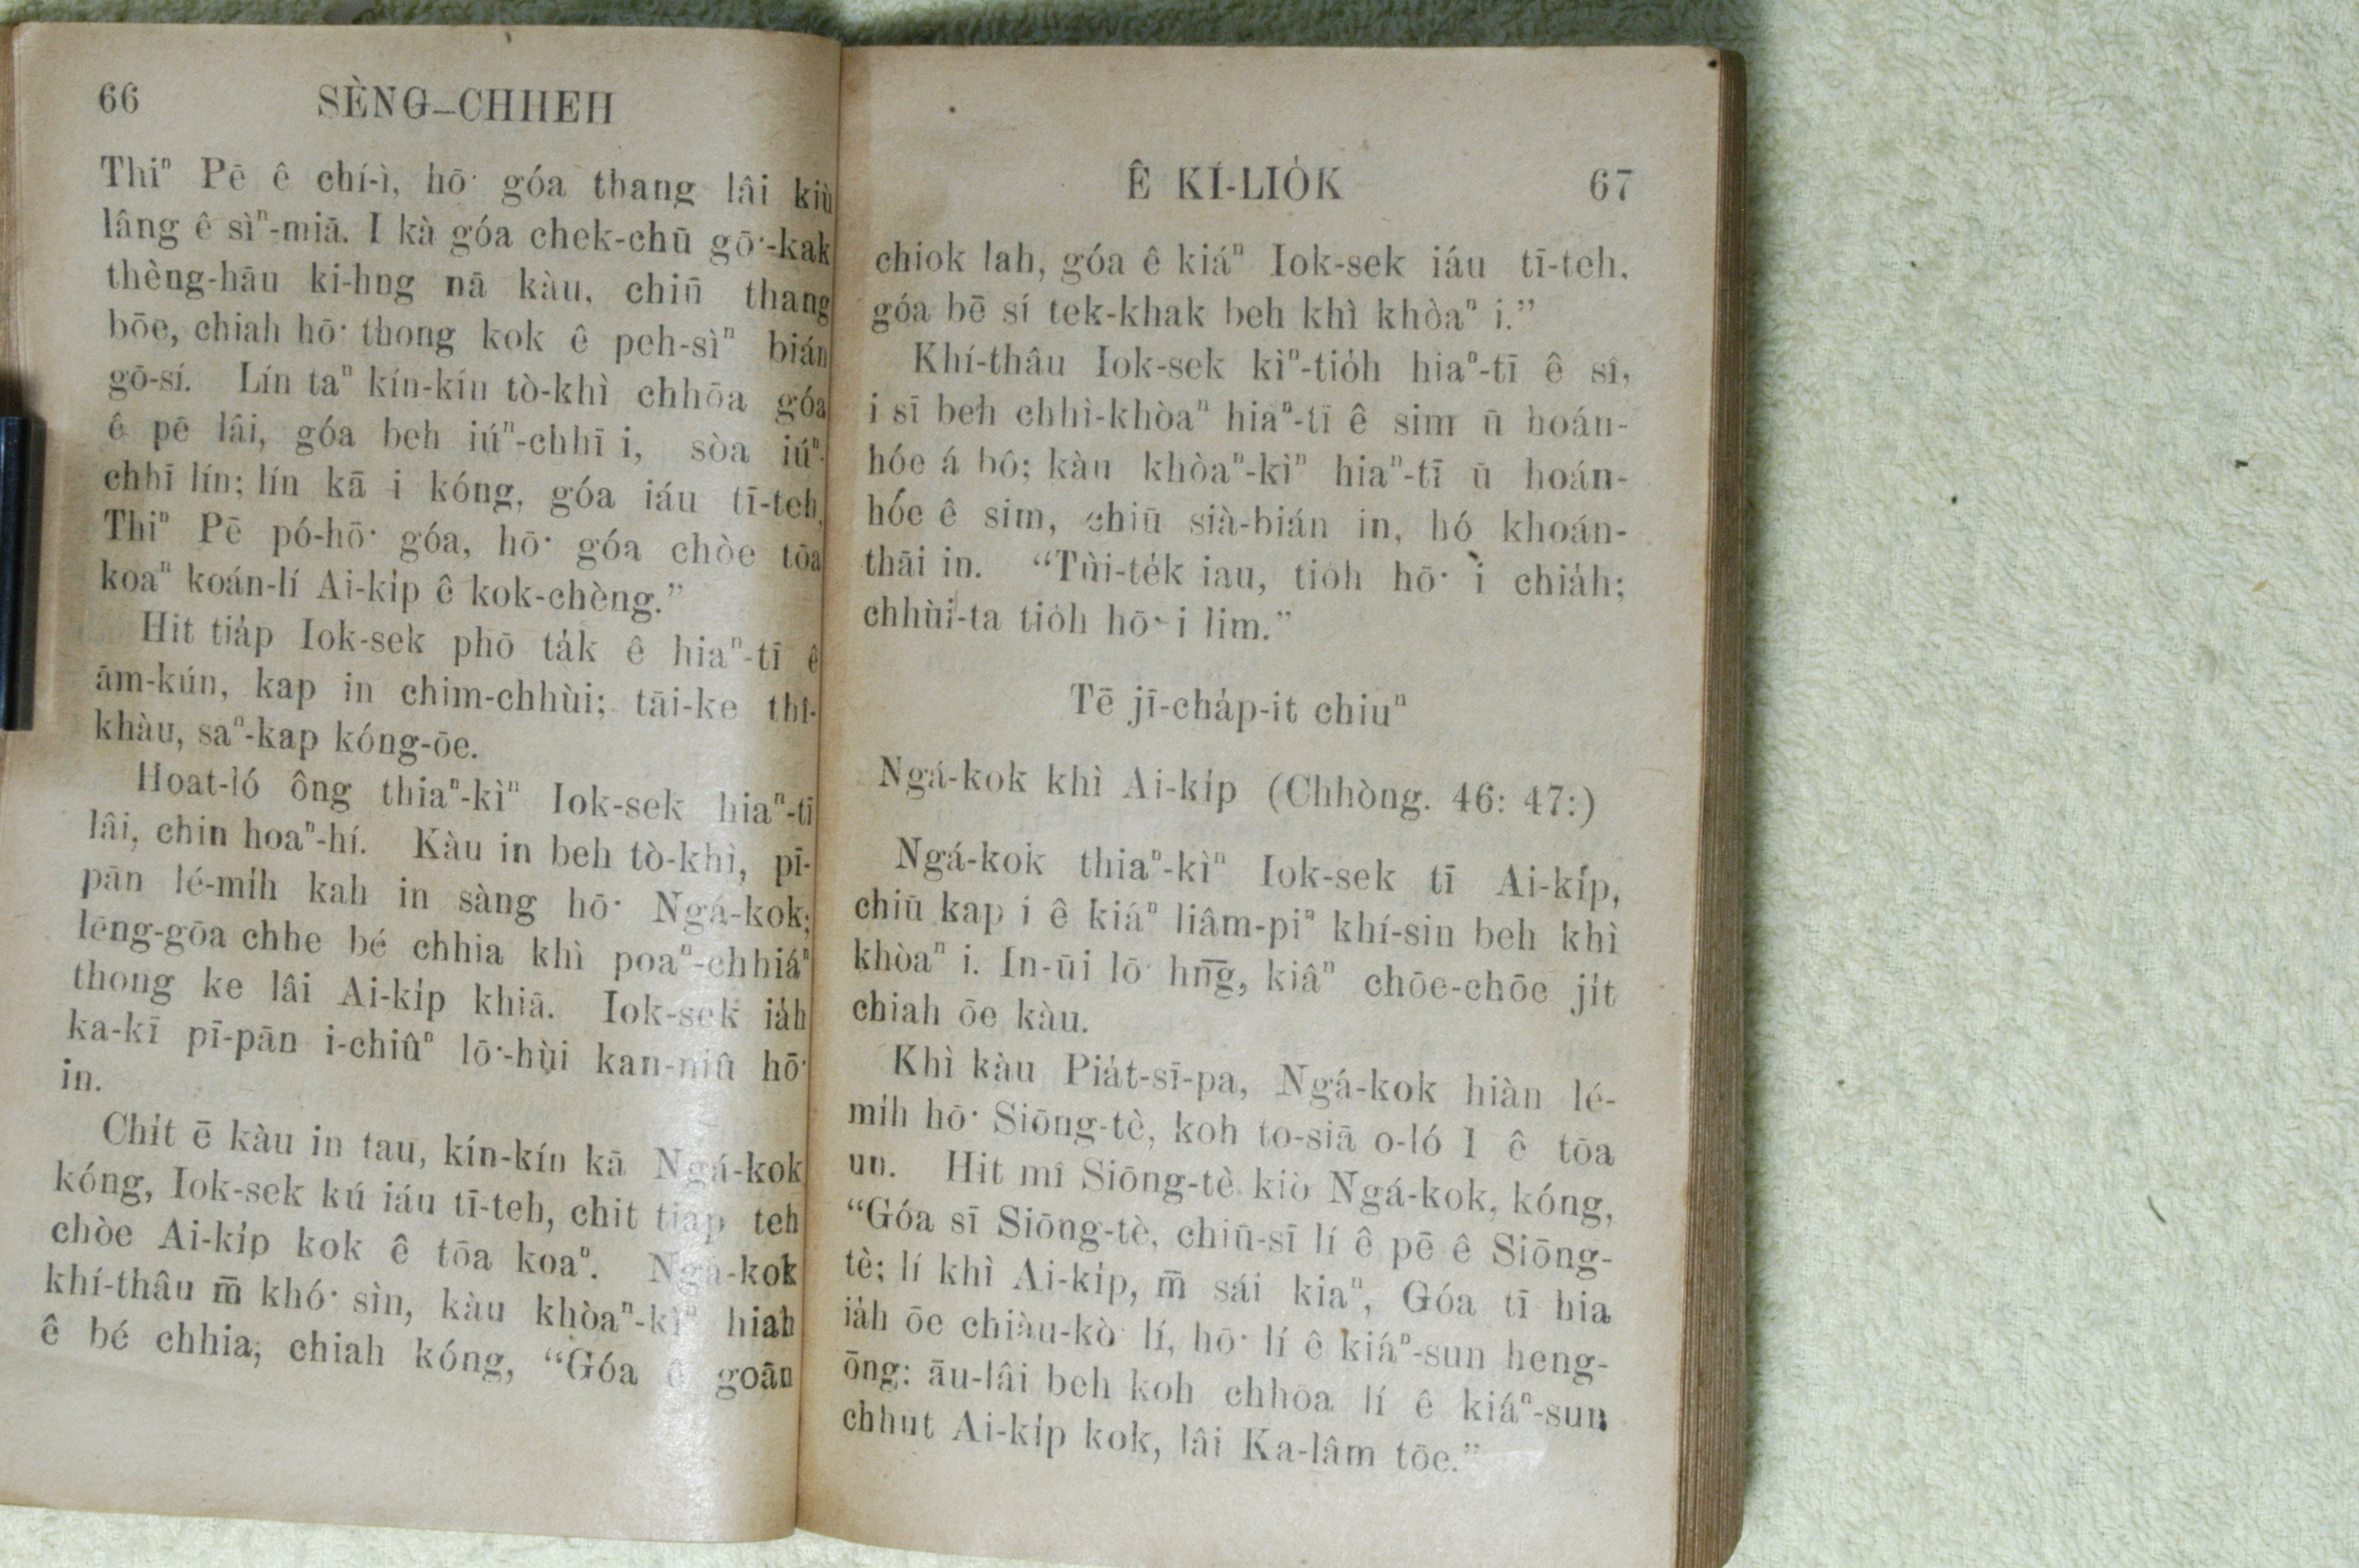 66 SÈNG-CHHEH
Thiⁿ Pē ê chí-ì, hō͘ góa thang lâi kiù
lâng ê sìⁿ-miā. I kà góa chek-chū gō͘-kak
thèng-hāu ki-hng nā kàu, chiū thang
bōe, chiah hō͘ thong kok ê peh-sìⁿ bián
gō-sí. Lín taⁿ kín-kín tò-khì chhōa góa
ê pē lâi, góa beh iúⁿ-chhī i, sòa iúⁿ-
chhī lín; lín kā i kóng, góa iáu tī-teh,
Thiⁿ Pē pó-hō͘ góa, hō͘ góa chòe tōa
koaⁿ koán-lí Ai-ki̍p ê kok-chèng.”
Hit tia̍p Iok-sek phō ta̍k ê hiaⁿ-tī ê
ām-kún, kap in chim-chhùi; tāi-ke thî-
khàu, saⁿ-kap kóng-ōe.
Hoat-ló ông thiaⁿ-kìⁿ Iok-sek hiaⁿ-tī
lâi, chin hoaⁿ-hí. Kàu in beh tò-khì, pī-
pān lé-mi̍h kah in sàng hō͘ Ngá-kok;
lēng-gōa chhe bé chhia khì poaⁿ-chhiáⁿ
thong ke lâi Ai-ki̍p khiā. Iok-sek ia̍h
ka-kī pī-pān i-chiûⁿ lō͘-hùi kan-niû hō͘
in.
Chi̍t ē kàu in tau, kín-kín kā Ngá-kok
kóng, Iok-sek kú iáu tī-teh, chit tia̍p teh
chòe Ai-ki̍p kok ê tōa koaⁿ. Ngá-kok
khí-thâu m̄ khó͘ sìn, kàu khòaⁿ-kìⁿ hiah
ê bé chhia, chiah kóng, “Góa ê goān
Ê KÍ-LIO̍K 67
chiok lah, góa ê kiáⁿ Iok-sek iáu tī-teh,
góa bē sí tek-khak beh khì khòaⁿ i.”
Khí-thâu Iok-sek kìⁿ-tio̍h hiaⁿ-tī ê sî,
i sī beh chhì-khòaⁿ hiaⁿ-tī ê sim ū hoán-
hóe á bô; kàu khòaⁿ-kìⁿ hiaⁿ-tī ū hoán-
hóe ê sim, chiū sià-bián in, hó khoán-
thāi in. “Tùi-te̍k iau, tio̍h hō͘ i chia̍h;
chhùi-ta tio̍h hō͘ i lim.”
Tē jī-cha̍p-it chiuⁿ
Ngá-kok khì Ai-ki̍p (Chhòng. 46: 47:)
Ngá-kok thiaⁿ-kìⁿ Iok-sek tī Ai-ki̍p,
chiū kap i ê kiáⁿ liâm-piⁿ khí-sin beh khì
khòaⁿ i. In-ūi lō͘ hn̄g, kiâⁿ chōe-chōe ji̍t
chiah ōe kàu.
Khì kàu Pia̍t-sī-pa, Ngá-kok hiàn lé-
mi̍h hō͘ Siōng-tè, koh to-siā o-ló I ê tōa
un. Hit mî Siōng-tè kiò Ngá-kok, kóng,
“Góa sī Siōng-tè, chiū-sī lí ê pē ê Siōng-
tè; lí khì Ai-ki̍p, m̄ sái kiaⁿ, Góa tī hia
ia̍h ōe chiàu-kò͘ lí, hō͘ lí ê kiáⁿ-sun heng-
ōng: āu-lâi beh koh chhōa lí ê kiáⁿ-sun
chhut Ai-ki̍p kok, lâi Ka-lâm tōe.”